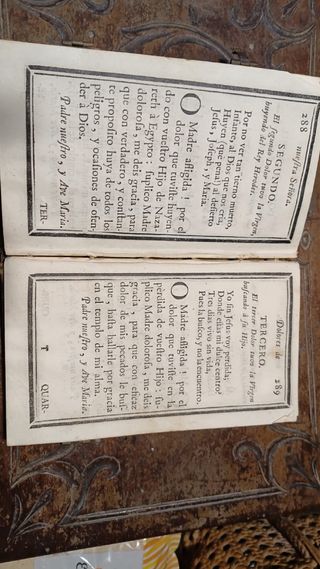 288 nueſtra Señora.
SEGUNDO.
El ſegundo Dolor tuvo la Virgen,
huyendo del Rey Herodes.
Por no ver tan tierno muerto,
Infante, al Dios que nos cria,
Huyen (que pena!) al deſierto
Jeſus, Joſeph, y Maria.
O Madre afligida! por el
dolor que tuviſte huyen-
do con vueſtro Hijo de Naza-
reth à Egypto: ſuplico Madre
doloroſa, me deis gracia, para
que con verdadero, y conſtan-
te propoſito huya de todos los
peligros, y ocaſiones de ofen-
der à Dios.
Padre nueſtro, y Ave Maria.
TER-
Dolores de 289
TERCERO.
El tercer Dolor tuvo la Virgen
buſcando à ſu Hijo.
Yo ſin Jeſus voy perdida;
Donde eſtàs mi dulce centro?
Tres dias vivo ſin vida,
Pues la buſco, y no la encuentro.
O Madre afligida! por el
dolor que tuviſte en la
pèrdida de vueſtro Hijo: ſu-
plico Madre doloroſa, me deis
gracia, para que con eficaz
dolor de mis pecados le buſ-
que, haſta hallarle por gracia
en el templo de mi alma.
Padre nueſtro, y Ave Maria.
T QUAR-